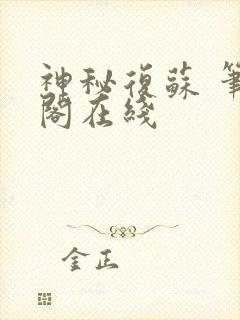 神秘復蘇 筆
閣在綫
金正